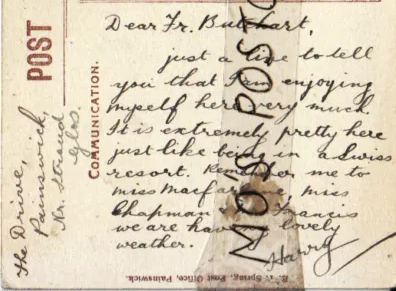 Dear Fr. Butchart,
just a line to tell
you that I am enjoying
myself here very much.
It is extremely pretty here
just like being in a Swiss
resort. Remember me to
miss Macfarlane, miss
Chapman Francis
we are having lovely
weather.
Harry
The Drive,
Painswick,
Nr. Stroud
Glos.
POST
COMMUNICATION.
NO 5 POST
Spring, Post Office, Painswick.